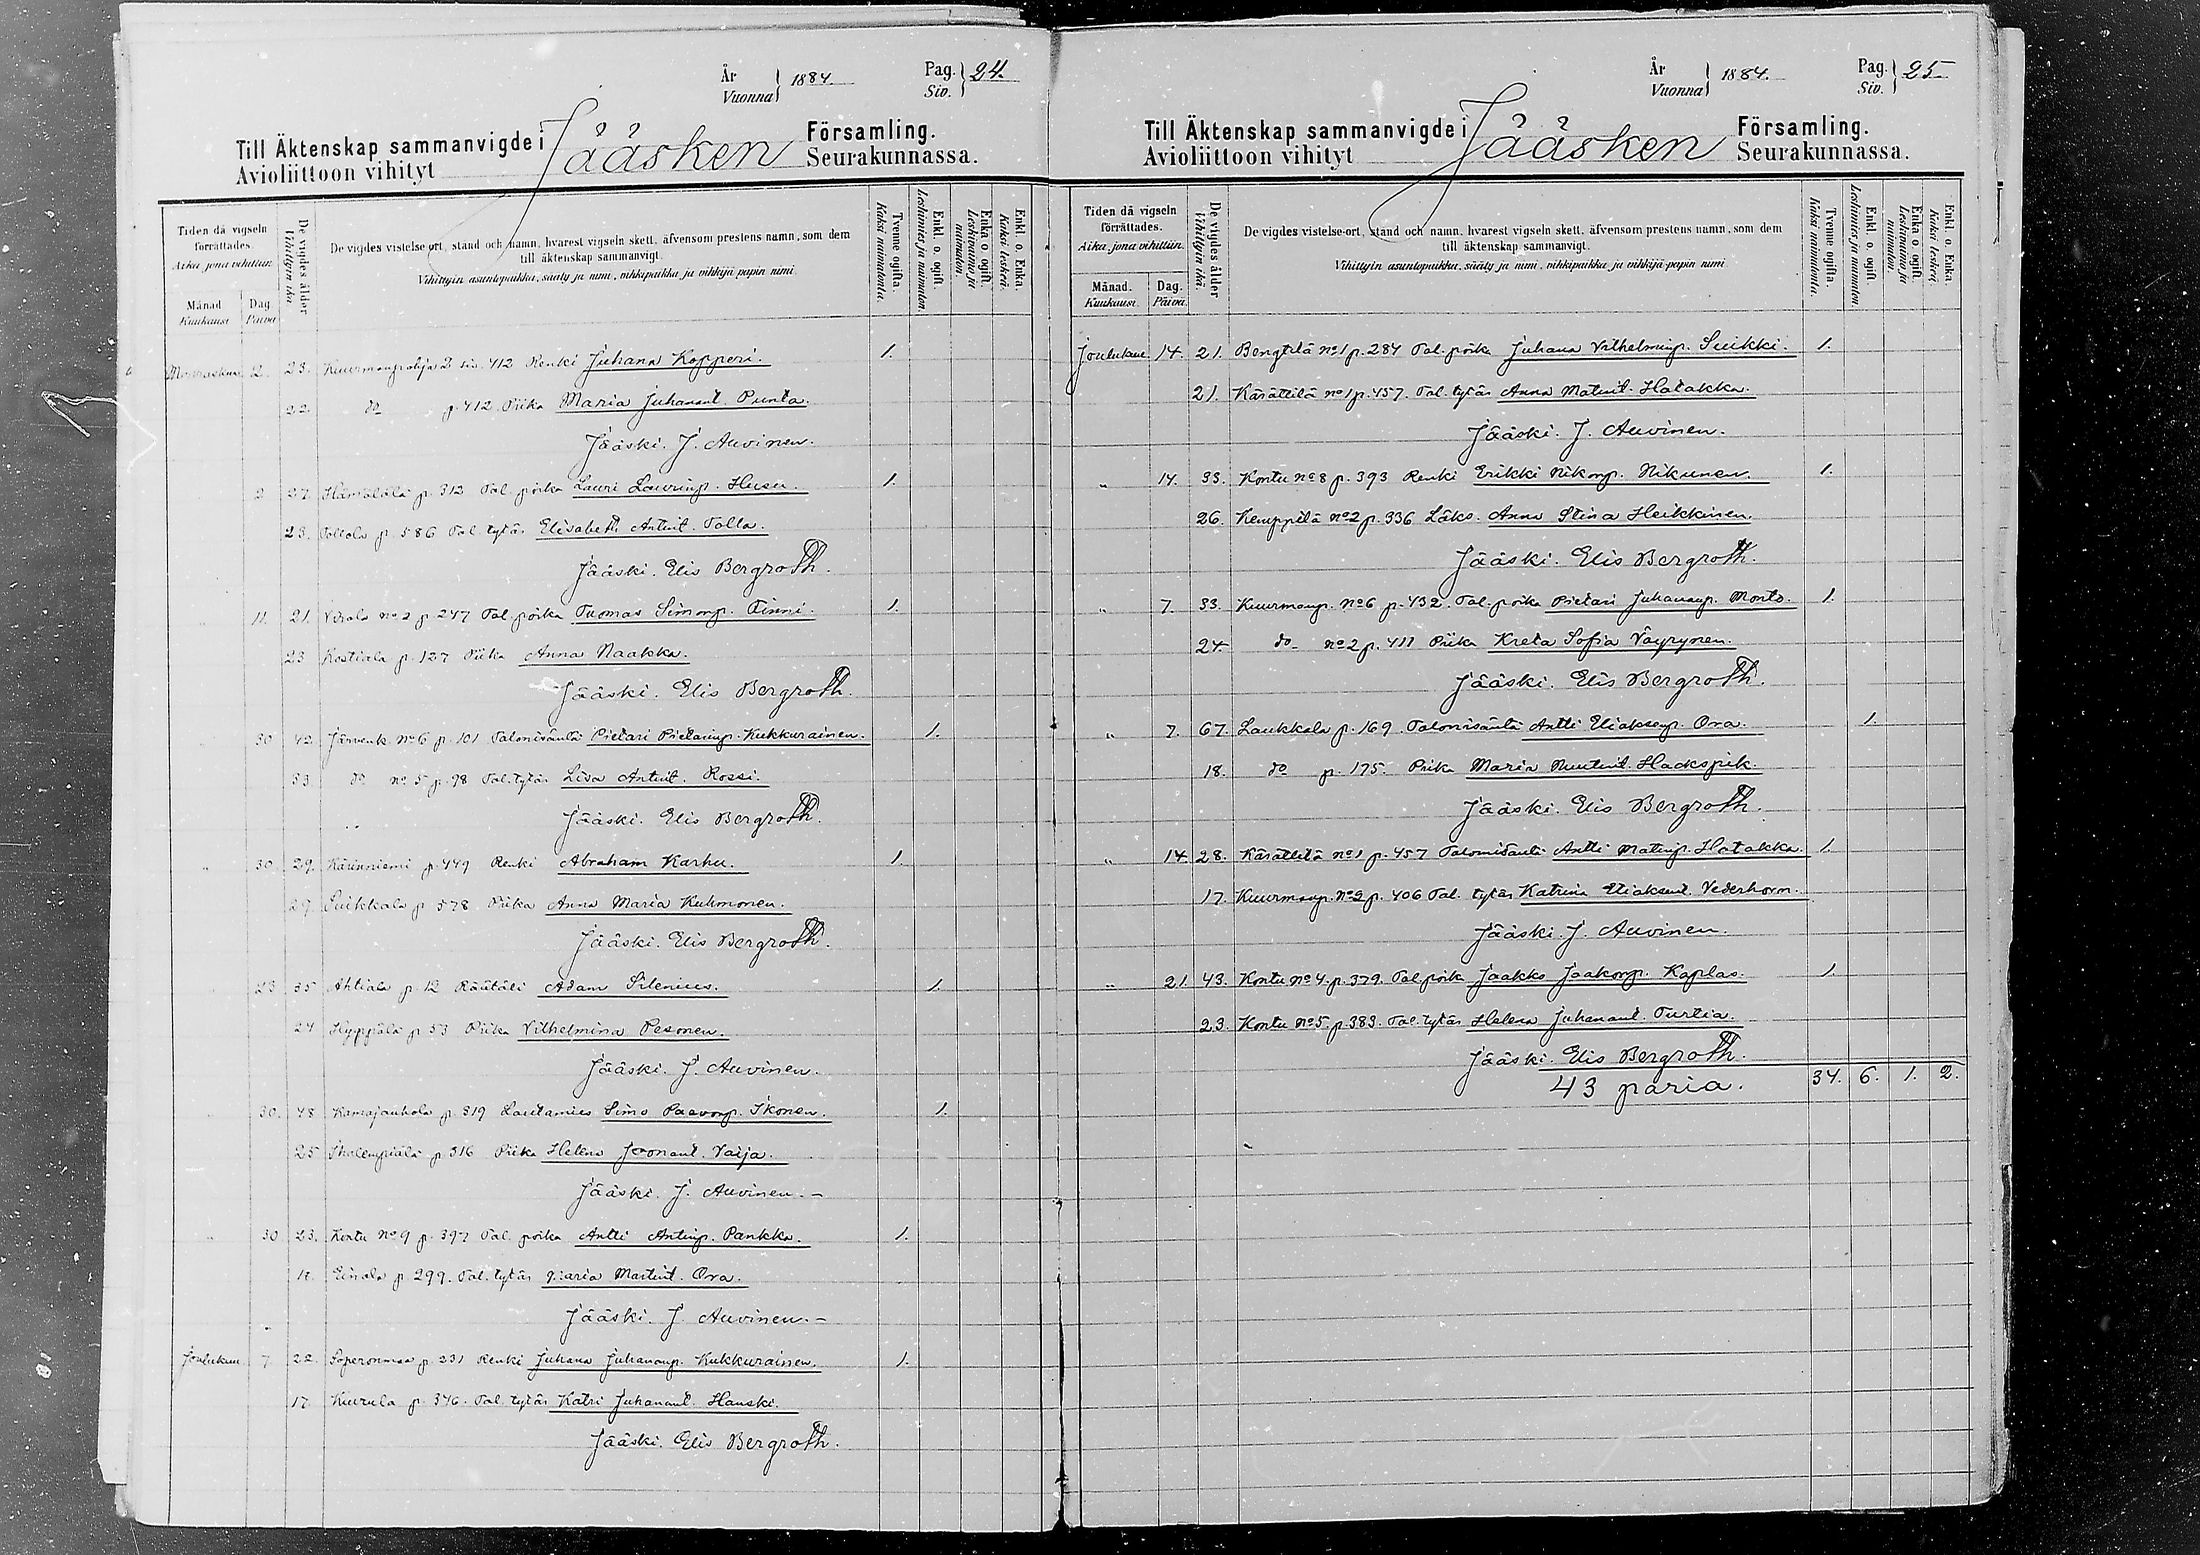 År Vuonna } 1884. Pag. Siv. } 24.
Till Äktenskap sammanvigde i Jääsken Församling.
Avioliittoon vihityt Seurakunnassa.
Tiden då vigseln förrättades.
Aika, jona vihittiin.
Månad. Kuukausi
Dag. Päivä
De vigdes ålder
Vihittyin ikä.
De vigdes vistelse-ort, stånd och namn, hvarest vigseln skett, äfvensom prestens namn, som dem
till äktenskap sammanvigt.
Vihittyin asuntopaikka, sääty ja nimi, vihkipaikka ja vihkijä-papin nimi.
Tvenne ogifta. Kaksi naimatonta.
Enkl. o. ogift. Leskimies ja naimaton.
Enka o. ogift. Leskivaimo ja naimaton.
Enkl. o. Enka. Kaksi leskeä.
Marraskuu 2. 23. Kuurmanpohja 2 siv. 412 Renki Juhana Kopperi. 1.
22. do p. 412 Piika Maria Juhanant. Punta.
Jääski. J. Auvinen.
2 27 Hämälälä p. 312 Tal. poika Lauri Laurinp. Husu. 1.
23. Tollola p. 586 Tal. tytär Elisabeth Antint. Tolla.
Jääski. Elis Bergroth.
11. 21. No 2 p. 247 Tal. poika Tuomas Simonp. Tinni. 1.
23 Kostiala p. 127 Piika Anna Naakka.
Jääski. Elis Bergroth.
30 42. Järvenk. No 6 p. 101 Talonisäntä Pietari Pietarinp. Kukkurainen. 1.
33 do No 5 p. 98 Tal. tytär Lisa Antint. Rossi.
Jääski. Elis Bergroth.
" 30 29. Käinniemi p. 449 Renki Abraham Karhu. 1.
29. Suikkala p. 578 Piika Anna Maria Kuhmonen.
Jääski. Elis Bergroth.
23 35 Ahtiala p. 12 Räätäli Adam Silenius. 1.
24 Hyppölä p. 53 Piika Vilhelmina Pesonen.
Jääski. J. Auvinen.
" 30. 48 p. 319 Lautamies Simo Paavonp. Ikonen. 1.
25 p. 316 Piika Helena Joonant. Vaija.
Jääski. J. Auvinen. -
" 30 23. Kontu No 9 p. 397 Tal. poika Antti Antinp. Pankka. 1.
18. p. 299. Tal. tytär Maria Martint. Ora.
Jääski. J. Auvinen. -
Joulukuu 7 22. p. 231 Renki Juhana Juhananp. Kukkurainen. 1.
17 Kuurula p. 346. Tal. tytär Katri Juhanant. Hanski.
Jääski. Elis Bergroth.
År Vuonna } 1884. Pag. Siv. } 25
Till Äktenskap sammanvigde i Jääsken Församling.
Avioliittoon vihityt Seurakunnassa.
Tiden då vigseln förrättades.
Aika, jona vihittiin.
Månad. Kuukausi
Dag. Päivä.
De vigdes ålder
Vihittyin ikä.
De vigdes vistelse-ort, stånd och namn, hvarest vigseln skett, äfvensom prestens namn, som dem
till äktenskap sammanvigt.
Vihittyin asuntopaikka, sääty ja nimi, vihkipaikka ja vihkijä-papin nimi.
Tvenne ogifta. Kaksi naimatonta.
Enkl. o. ogift. Leskimies ja naimaton.
Enka o. ogift. Leskivaimo ja naimaton.
Enkl. o. Enka. Kaksi leskeä.
Joulukuu. 14. 21. Bengtilä No 1 p. 284 Tal. poika Juhana Vilhelminp. Suikki. 1.
21. Kärättilä No 1 p. 457. Tal. tytär Anna Matint. Hatakka.
Jääski. J. Auvinen.
" 14. 33. Kontu No 8 p. 393 Renki Erikki Nikonp. Nikunen. 1.
26. Kemppilä No 2 p. 336 Läks. Anna Stina Heikkinen.
Jääski. Elis Bergroth.
" 7. 33. Kuurmanp. No 6 p. 432. Tal. poika Pietari Juhananp. Monto. 1.
24 do No 2 p. 411 Piika Kreta Sofia Väyrynen.
Jääski. Elis Bergroth.
" 7. 67. Laukkala p. 169. Talonisäntä Antti Eliaksenp. Ora. 1.
18. do p. 175. Piika Maria Hackspik.
Jääski. Elis Bergroth.
" 14 28. Kärättilä No 1 p. 457 Talonisäntä Antti Matinp. Hatakka. 1.
17. Kuurmanp. No 2 p. 406 Tal. tytär Katrina Eliaksent. Vederhorn.
Jääski. J. Auvinen.
" 21. 43. Kontu No 4. p. 379. Tal. poik. Jaakko Jaakonp. Kaplas. 1.
23. Kontu No 5. p. 383. Tal. tytär Helena Juhanant. Turtia.
Jääski. Elis Bergroth.
43 paria. 34. 6. 1. 2.